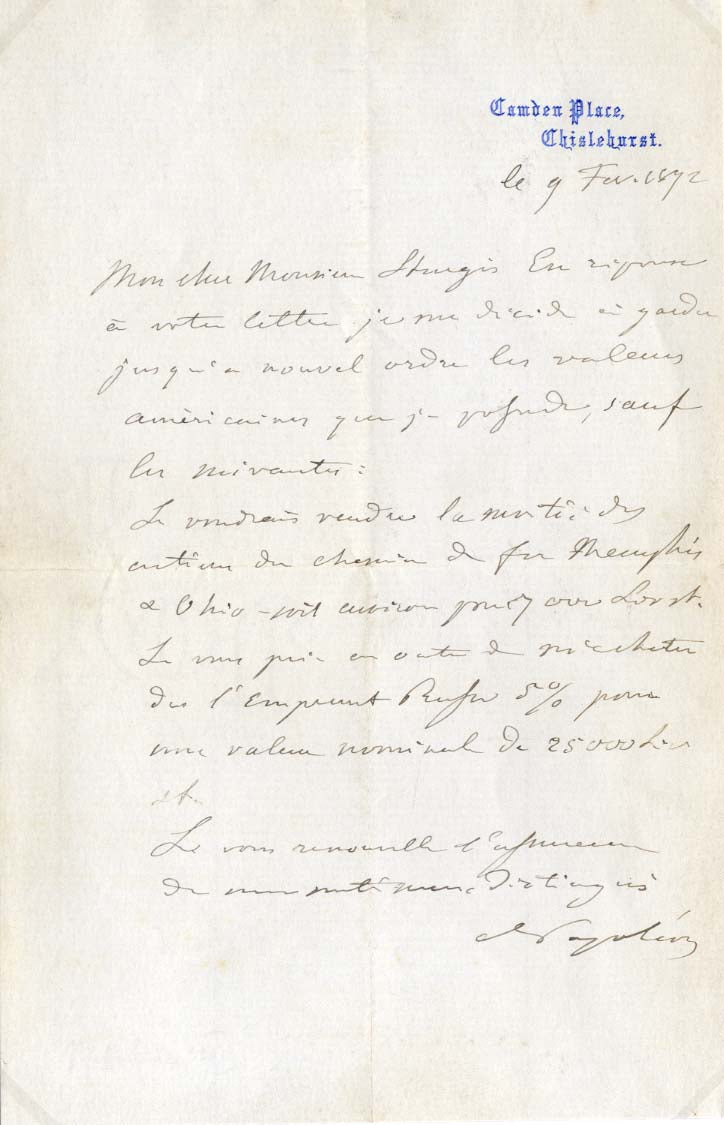 Camden Place,
Chislehurst.
le 9 Fev. 1872
Mon cher Monsieur Sturgis En réponse
à votre lettre je me décide à garder
jusqu'a nouvel ordre les valeurs
américaines que je possede, sauf
les suivantes:
Je voudrais vendre la moitié des
actions du chemin de fer Memphis
& Ohio - soit environ pour 7000 Lv st.
Je vous prie en outre de m'acheter
de l'Emprunt Russe 5% pour
une valeur nominale de 25000 Liv
st.
Je vous renouvelle l'assurance
de mes sentimens distingués
Napoléon